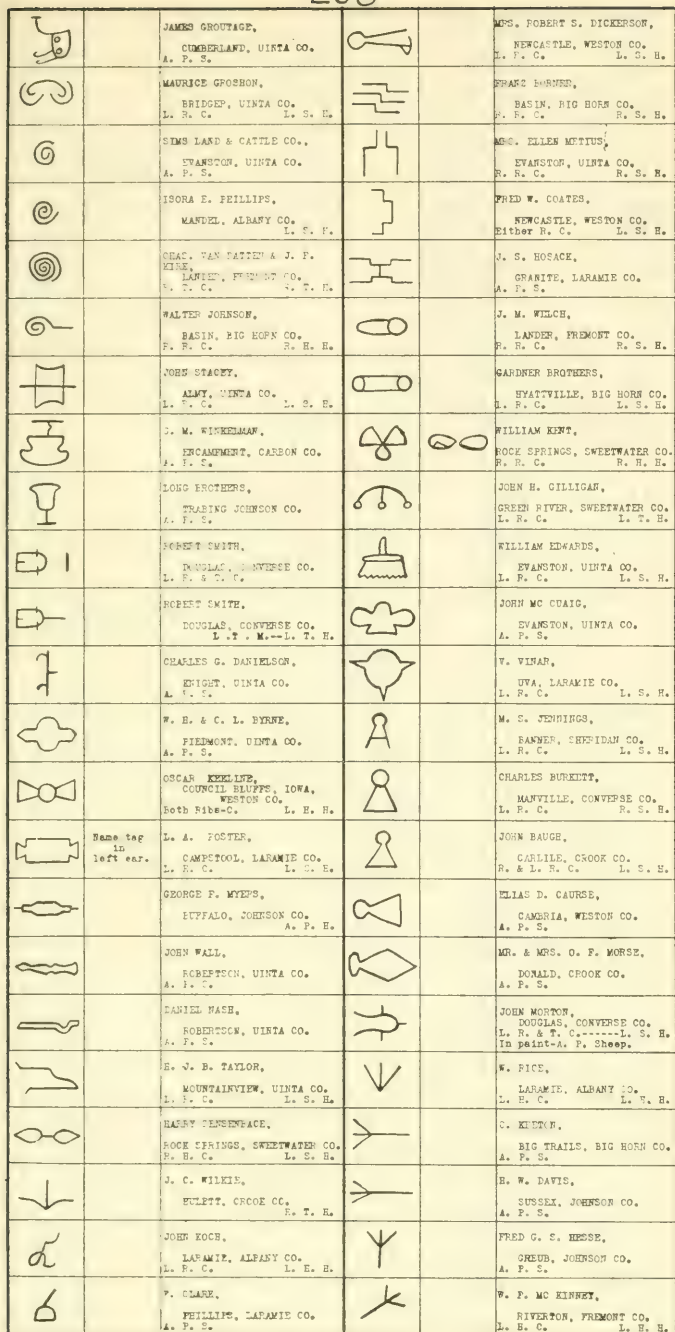 JAMES GROUTAGE,
CUMBERLAND, UINTA CO.
A. P. S.
MAURICE GROSHON,
BRIDGER, UINTA CO.
L. R. C. L. S. H.
SIMS LAND & CATTLE CO.,
EVANSTON, UINTA CO.
A. P. S.
ISORA E. PHILLIPS,
MANDEL, ALBANY CO.
L. S. H.
CHAS. VAN PATTEN & J. P.
KIRK,
LANDER, FREMONT CO.
T. C. T. H.
WALTER JOHNSON,
BASIN, BIG HORN CO.
R. R. C. R. H. H.
JOHN STACEY,
ALMY, UINTA CO.
L. R. C. L. S. H.
M. WINKELMAN,
ENCAMPMENT, CARBON CO.
A. P. S.
LONG BROTHERS,
TRABING JOHNSON CO.
A. P. S.
ROBERT SMITH,
DOUGLAS, CONVERSE CO.
L. R. & T. C.
ROBERT SMITH,
DOUGLAS, CONVERSE CO.
L .T . M.--L. T. H.
CHARLES G. DANIELSON,
KNIGHT, UINTA CO.
A. P. S.
W. H. & C. L. BYRNE,
PIEDMONT, UINTA CO.
A. P. S.
OSCAR KEELINE,
COUNCIL BLUFFS, IOWA,
WESTON CO.
Both Ribs-C. L. H. H.
Name tag
in
left ear.
L. A. FOSTER,
CAMPSTOOL, LARAMIE CO.
L. R. C. L. S. H.
GEORGE F. MYERS,
BUFFALO, JOHNSON CO.
A. P. H.
JOHN WALL,
ROBERTSON, UINTA CO.
A. P. S.
DANIEL NASH,
ROBERTSON, UINTA CO.
A. P. S.
J. B. TAYLOR,
MOUNTAINVIEW, UINTA CO.
L. R. C. L. S. H.
HARRY
ROCK SPRINGS, SWEETWATER CO.
R. H. C. L. S. H.
J. C. WILKIE,
HULETT, CROOK CO.
R. T. H.
JOHN KOCH,
LARAMIE, ALBANY CO.
L. R. C. L. H. H.
CLARK,
PHILLIPS, LARAMIE CO.
A. P. S.
MRS. ROBERT S. DICKERSON,
NEWCASTLE, WESTON CO.
L. R. C. L. S. H.
FRANZ
BASIN, BIG HORN CO.
R. R. C. R. S. H.
MRS. ELLEN METIUS,
EVANSTON, UINTA CO.
R. R. C. R. S. H.
FRED W. COATES,
NEWCASTLE, WESTON CO.
Either R. C. L. S. H.
J. S. HOSACK,
GRANITE, LARAMIE CO.
A. P. S.
J. M. WELCH,
LANDER, FREMONT CO.
R. R. C. R. S. H.
GARDNER BROTHERS,
HYATTVILLE, BIG HORN CO.
L. R. C. L. S. H.
WILLIAM KENT,
ROCK SPRINGS, SWEETWATER CO.
R. R. C. R. H. H.
JOHN H. GILLIGAN,
GREEN RIVER, SWEETWATER CO.
L. R. C. L. T. H.
WILLIAM EDWARDS,
EVANSTON, UINTA CO.
L. R. C. L. S. H.
JOHN MC CUAIG,
EVANSTON, UINTA CO.
A. P. S.
V. VINAR,
UVA, LARAMIE CO.
L. R. C. L. S. H.
M. S. JENNINGS,
BANNER, SHERIDAN CO.
L. R. C. L. S. H.
CHARLES BURKETT,
MANVILLE, CONVERSE CO.
L. R. C. R. S. H.
JOHN BAUGH,
CARLILE, CROOK CO.
R. & L. R. C. L. S. H.
ELIAS D. CAURSE,
CAMBRIA, WESTON CO.
A. P. S.
MR. & MRS. O. F. MORSE,
DONALD, CROOK CO.
A. P. S.
JOHN MORTON,
DOUGLAS, CONVERSE CO.
L. R. & T. C.------L. S. H.
In paint-A. P. Sheep.
W. RICE,
LARAMIE, ALBANY CO.
L. H. C. L. H. H.
BIG TRAILS, BIG HORN CO.
A. P. S.
H. W. DAVIS,
SUSSEX, JOHNSON CO.
A. P. S.
FRED G. S. HESSE,
GREUB, JOHNSON CO.
A. P. S.
W. P. MC KINNEY,
RIVERTON, FREMONT CO.
L. H. C. L. H. H.